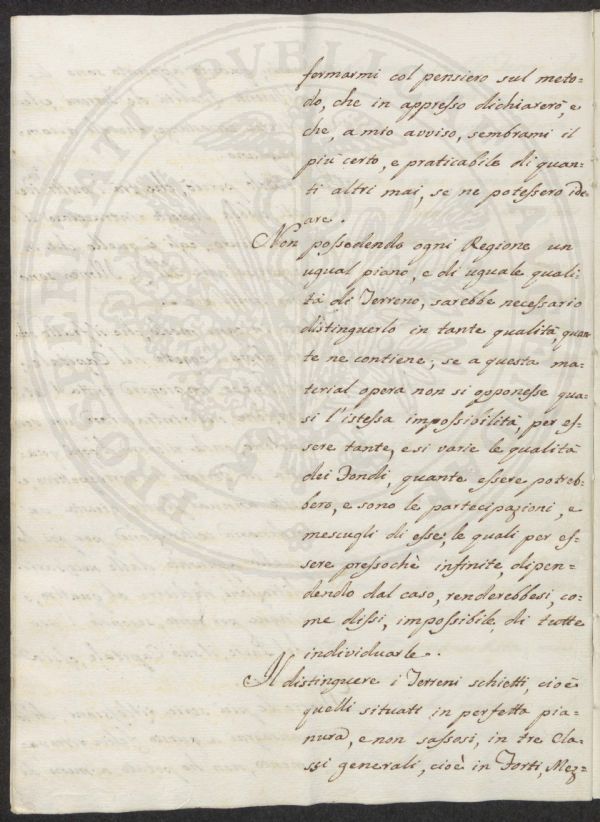 formarmi col pensiero sul meto=
do, che in appresso dichiarerò, e
che, a mio avviso, sembrami il
più certo, e praticabile di quan=
ti altri mai, se ne potessero ide=
are.
Non possedendo ogni Regione un
ugual piano, e di uguale quali=
tà di Terreno, sarebbe necessario
distinguerlo in tante qualità, quan=
te ne contiene; se a questa ma=
terial opera non si opponesse qua=
si l'istessa impossibilità, per es=
sere tante, e si varie le qualità
dei Fondi, quante essere potreb=
bero, e sono le partecipazioni, e
mescugli di esse; le quali per es=
sere pressochè infinite, dipen=
dendo dal caso, renderebbesi, co=
me dissi, impossibile di tutte
individuarle.
Il distinguere i Terreni schietti, cioè
quelli situati in perfetta pia=
nura, e non sassosi, in tre Cla=
ssi generali, cioè in Forti, Mez=